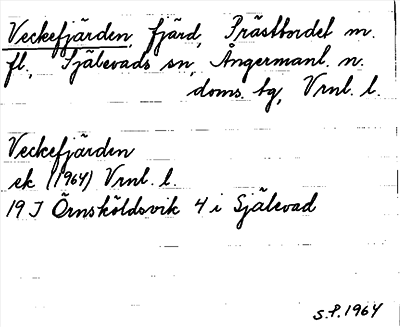 Veckefjärden, fjärd, Prästbordet m.
fl., Själevads sn, Ångermanl. n.
doms. tg, Vrnl. l.
Veckefjärden
ek (1964) Vrnl. l.
19 J Örnsköldsvik 4 i Själevad
S.P. 1964